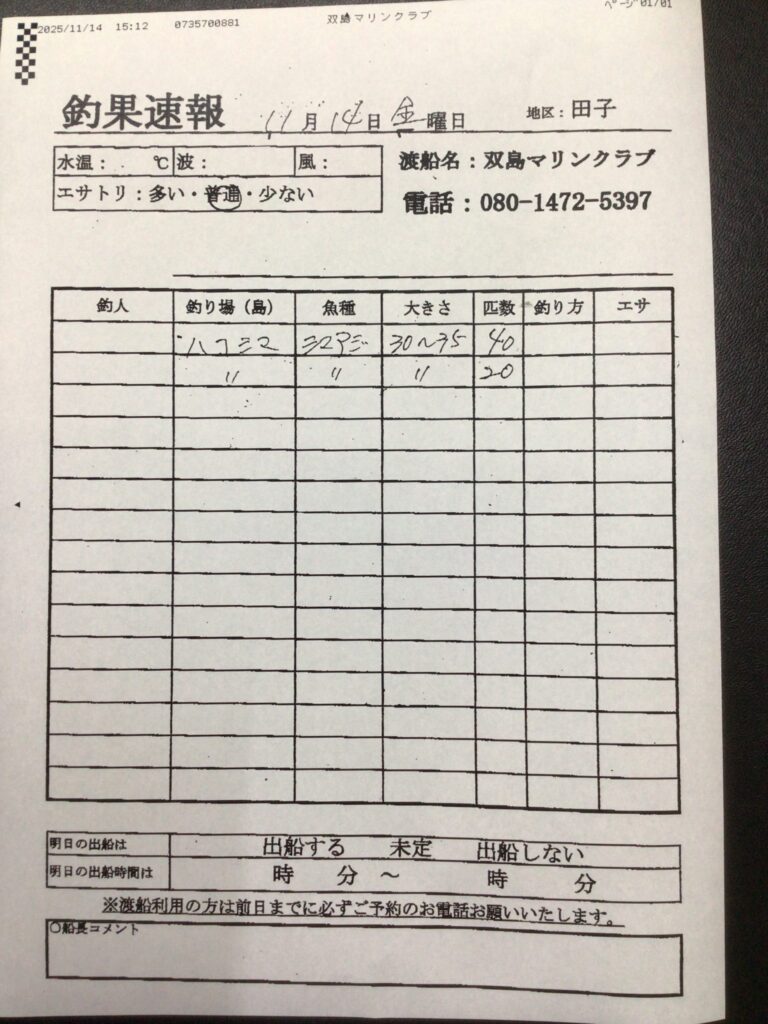 2025/11/14 15:12 0735700881 双島マリンクラブ ページ 01/01
釣果速報 11月14日金曜日 地区：田子
水温： ℃ 波： 風：
エサトリ：多い・普通・少ない
渡船名：双島マリンクラブ
電話：080-1472-5397
釣人 釣り場（島） 魚種 大きさ 匹数 釣り方 エサ
ハコシマ シマアジ 30〜35 40
〃 〃 〃 20
明日の出船は 出船する 未定 出船しない
明日の出船時間は 時 分 〜 時 分
※渡船利用の方は前日までに必ずご予約のお電話お願いいたします。
○船長コメント